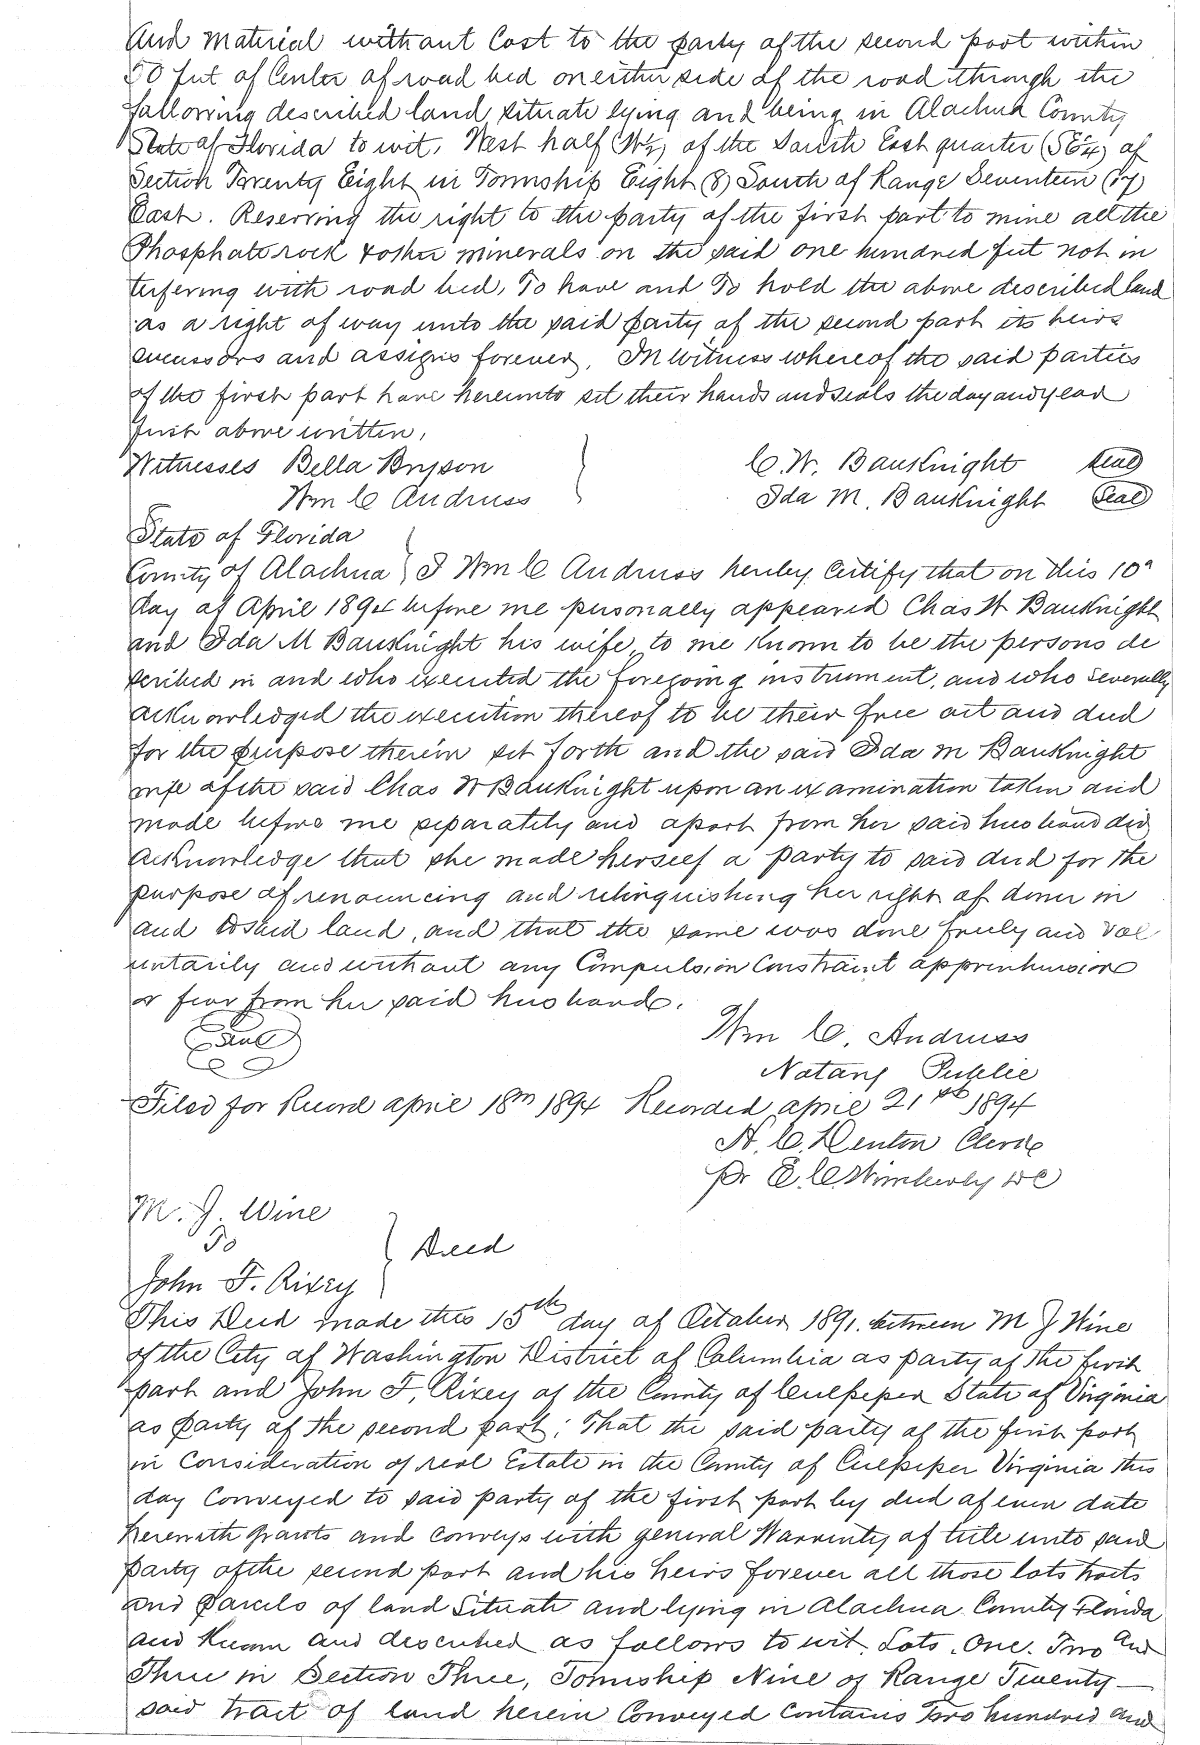 And material without Cost to the party of the second part within
50 feet of Center of road bed on either side of the road through the
following described land, situate lying and being in Alachua County
State of Florida to wit, West half (W½) of the South East quarter (SE¼) of
Section Twenty Eight in Township Eight (8) South of Range Seventeen (17)
East. Reserving the right to the party of the first part to mine all the
Phosphate rock & other minerals on the said one hundred feet not in
terfering with road bed, To have and To hold the above described land
as a right of way unto the said party of the second part its heirs
successors and assigns forever. In witness whereof the said parties
of the first part have hereunto set their hands and seals the day and year
first above written,
Witnesses Bella Bryson } C. W. BauKnight Seal
Wm C Andruss Ida M. BauKnight Seal
State of Florida
County of Alachua } I Wm C Andruss hereby Certify that on this 10th
day of April 1894 before me personally appeared Chas W BauKnight
and Ida M BauKnight his wife, to me Known to be the persons de
scribed in and who executed the foregoing instrument, and who severally
acknowledged the execution thereof to be their free act and deed
for the purpose therein set forth and the said Ida M BauKnight
wife of the said Chas W BauKnight upon an examination taken and
made before me separately and apart from her said husband did
acknowledge that she made herself a party to said deed for the
purpose of renouncing and relinquishing her right of dower in
and to said land, and that the same was done freely and vol
untarily and without any Compulsion Constraint apprehension
or fear from her said husband.
Seal Wm C. Andruss
Notary Public
Filed for Record April 18th 1894 Recorded April 21st 1894
H. C. Denton Clerk
Pr E. C. Wimberly DC
M. J. Wine
To } Deed
John F. Rixey
This Deed made this 15th day of October 1891. between M J Wine
of the City of Washington District of Columbia as party of the first
part and John F. Rixey of the County of Culpeper State of Virginia
as party of the second part; That the said party of the first part
in Consideration of real Estate in the County of Culpeper Virginia this
day Conveyed to said party of the first part by deed of even date
herewith grants and conveys with general Warrenty of title unto said
party of the second part and his heirs forever all those lots tracts
and parcels of land Situate and lying in Alachua County Florida
and Known and described as follows to wit, Lots. One. Two and
Three in Section Three, Township Nine of Range Twenty—
said tract of land herein Conveyed Contains Two hundred and